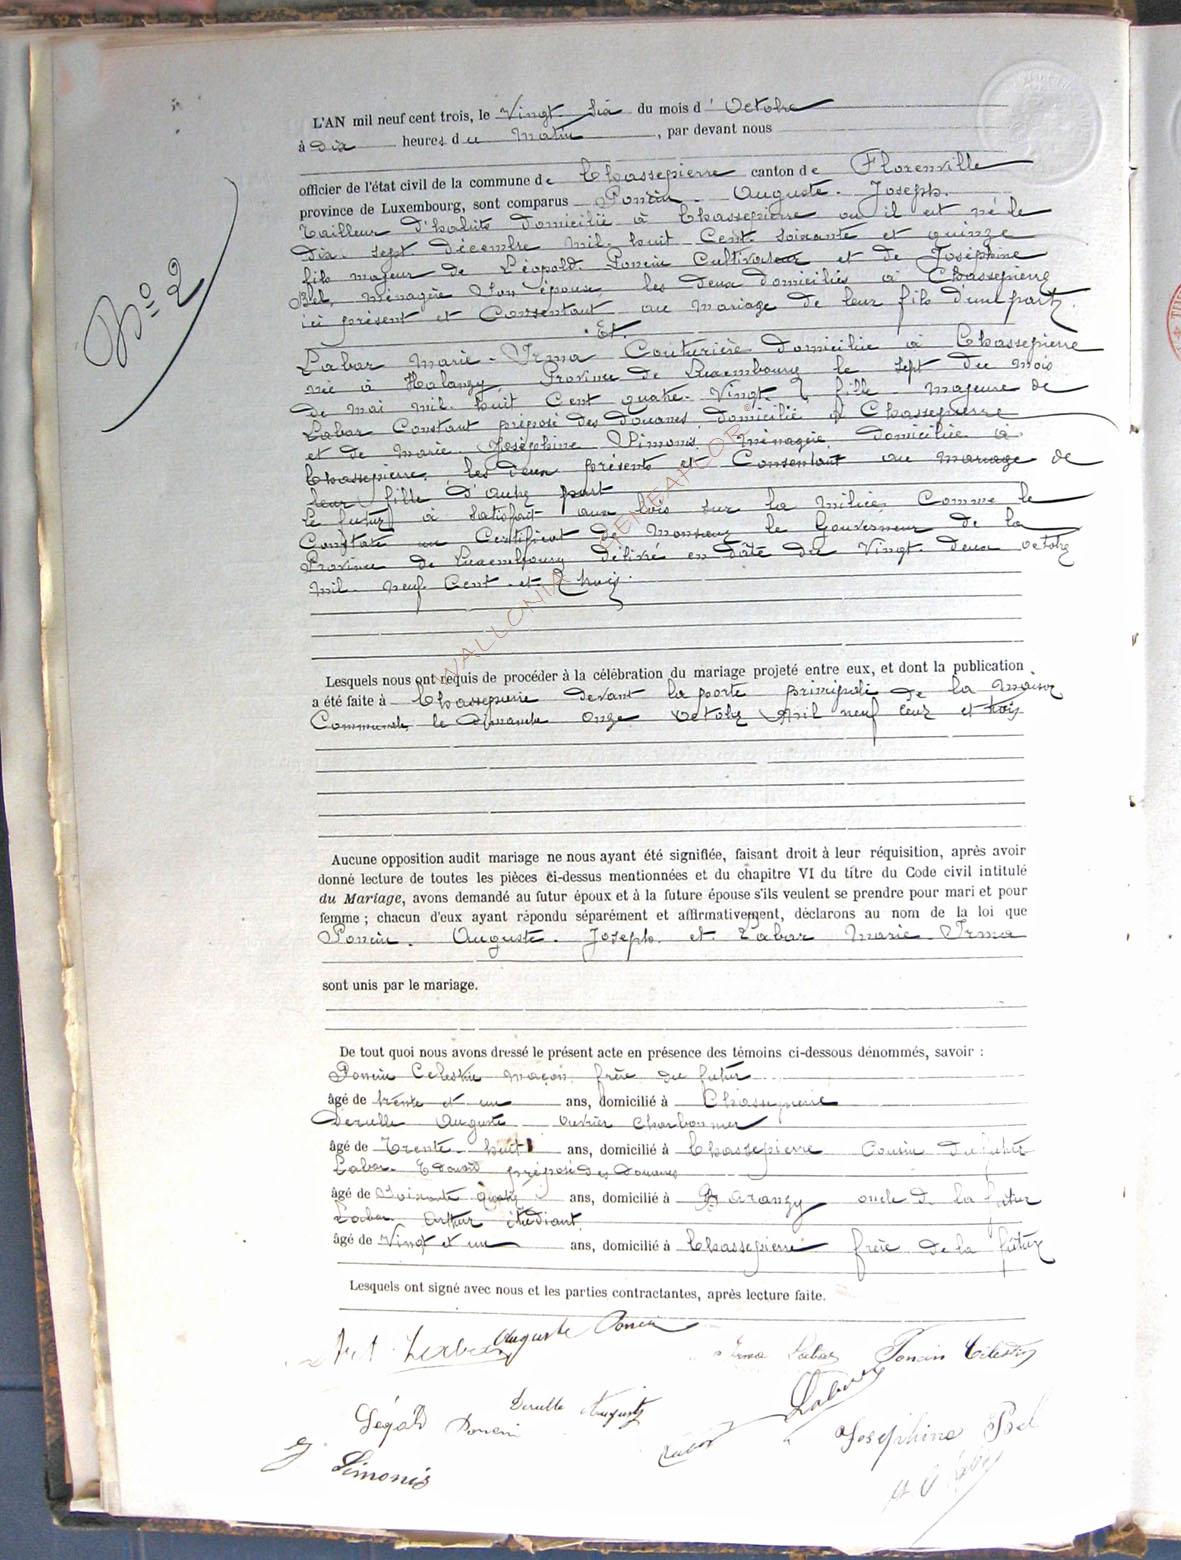 L'AN mil neuf cent trois, le Vingt six du mois d'Octobre
à dix heures du Matin, par devant nous
officier de l'état civil de la commune de Chassepierre canton de Florenville
province de Luxembourg, sont comparus Poncin Auguste Joseph.
Tailleur d'habits domicilié à Chassepierre où il est né le
dix sept décembre mil huit Cent soixante et quinze
fils majeur de Léopold Poncin Cultivateur et de Joséphine
Bel, ménagère son épouse les deux domiciliés à Chassepierre
ici présent et Consentant au mariage de leur fils d'une part
Et
N° 2
Labar Marie-Irma Couturière domicilié à Chassepierre
née à Halanzy Province de Luxembourg le sept du mois
de mai mil huit Cent quatre Vingt fille majeure de
Labar Constant préposé des douanes domicilié à Chassepierre
et de Marie Joséphine Simonis ménagère domicilié à
Chassepierre, les deux présents et Consentant au mariage de
leur fille d'autre part
le futur à satisfait aux lois sur la milice Comme le
Constate un Certificat de Monsieur le Gouverneur de la
Province de Luxembourg délivré en date du Vingt deux octobre
mil neuf Cent et trois.
WALLONIA GENEAFCOB ©
Lesquels nous ont requis de procéder à la célébration du mariage projeté entre eux, et dont la publication
a été faite à Chassepierre devant la porte principale de la Maison
Communale le dimanche onze octobre Mil neuf Cent et trois
Aucune opposition audit mariage ne nous ayant été signifiée, faisant droit à leur réquisition, après avoir
donné lecture de toutes les pièces ci-dessus mentionnées et du chapitre VI du titre du Code civil intitulé
du Mariage, avons demandé au futur époux et à la future épouse s'ils veulent se prendre pour mari et pour
femme ; chacun d'eux ayant répondu séparément et affirmativement, déclarons au nom de la loi que
Poncin Auguste Joseph et Labar Marie Irma
sont unis par le mariage.
De tout quoi nous avons dressé le présent acte en présence des témoins ci-dessous dénommés, savoir :
Poncin Celestin maçon frère du futur
âgé de trente et un ans, domicilié à Chassepierre
Derulle Auguste ouvrier charbonnier
âgé de Trente huit ans, domicilié à Chassepierre Cousin du futur
Labar Edouard préposé des Douanes
âgé de Soixante quatre ans, domicilié à Baranzy oncle de la futur
Labar Arthur étudiant
âgé de Vingt et un ans, domicilié à Chassepierre frère de la futur
Lesquels ont signé avec nous et les parties contractantes, après lecture faite.
Auguste Poncin
Irma Labar Poncin Célestin
Derulle Auguste Labar
Poncin Joséphine Bel
Simonis